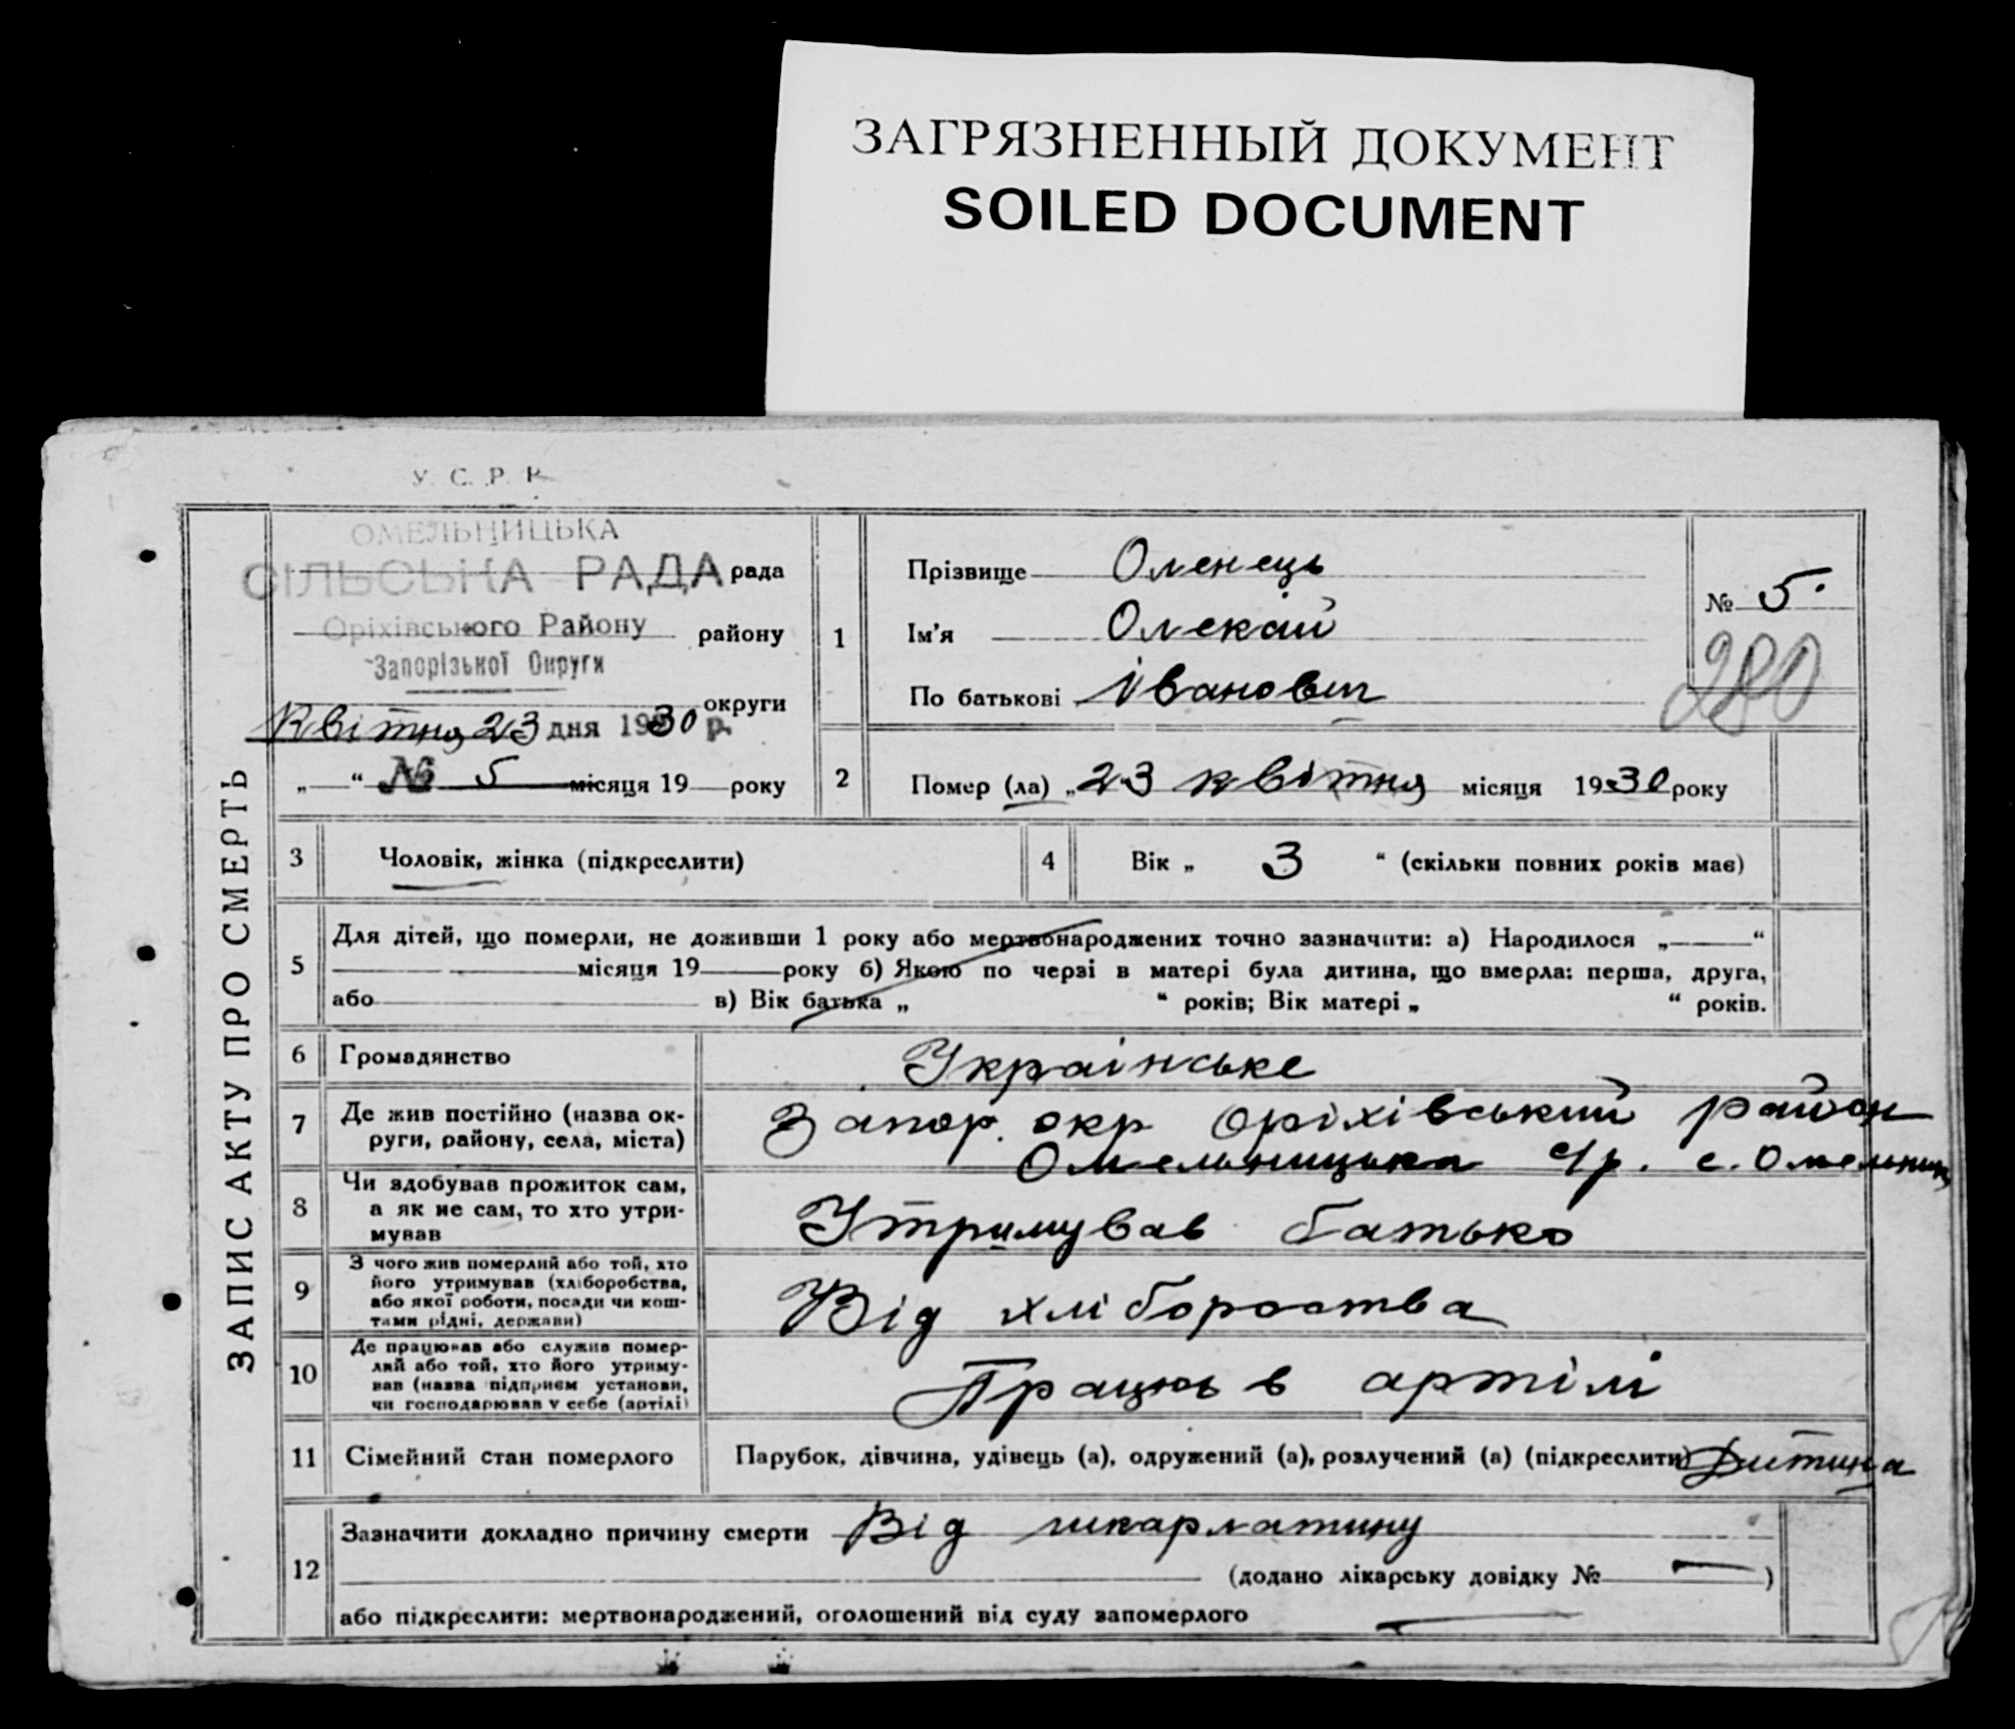 ЗАГРЯЗНЕННЫЙ ДОКУМЕНТ
SOILED DOCUMENT
У. С. Р. Р.
ОМЕЛЬНИЦЬКА
СІЛЬСЬКА РАДА рада
Оріхівського Району району
Запорізької Округи
округи
Квітня 23 дня 1930 р.
„ “ № 5 місяця 19 року
ЗАПИС АКТУ ПРО СМЕРТЬ
1
Прізвище Оленець
Ім’я Олексій
По батькові Іванович
№ 5.
280
2 Помер (ла) „23 квітня місяця 1930 року
3 Чоловік, жінка (підкреслити)
4 Вік „ 3 “ (скільки повних років має)
5 Для дітей, що померли, не доживши 1 року або мертвонароджених точно зазначити: а) Народилося „ “
місяця 19 року б) Якою по черзі в матері була дитина, що вмерла: перша, друга,
або в) Вік батька „ “ років; Вік матері „ “ років.
6 Громадянство Українське
7 Де жив постійно (назва ок-
руги, району, села, міста)
Запор. окр Оріхівський район
Омельницька с/р. с. Омельник
8 Чи здобував прожиток сам,
а як не сам, то хто утри-
мував
Утримував батько
9 З чого жив померлий або той, хто
його утримував (хліборобства,
або якої роботи, посади чи кош-
тами рідні, держави)
Від хліборотва
10 Де працював або служив помер-
лий або той, хто його утриму-
вав (назва підприєм установи,
чи господарював у себе (артілі)
Працює в артілі
11 Сімейний стан померлого Парубок, дівчина, удівець (а), одружений (а), розлучений (а) (підкреслити) Дитина
12 Зазначити докладно причину смерти Від шкарлатину
(додано лікарську довідку № — )
або підкреслити: мертвонароджений, оголошений від суду запомерлого —